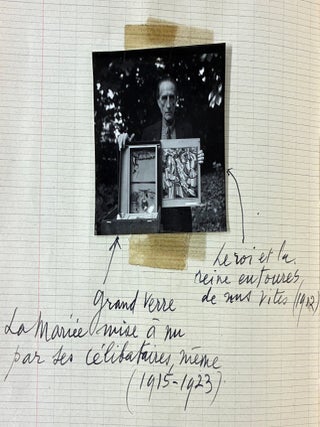 Le roi et la
reine entourés
de nus vites (1912)
Grand Verre
La Mariée mise à nu
par ses célibataires, même
(1915-1923)